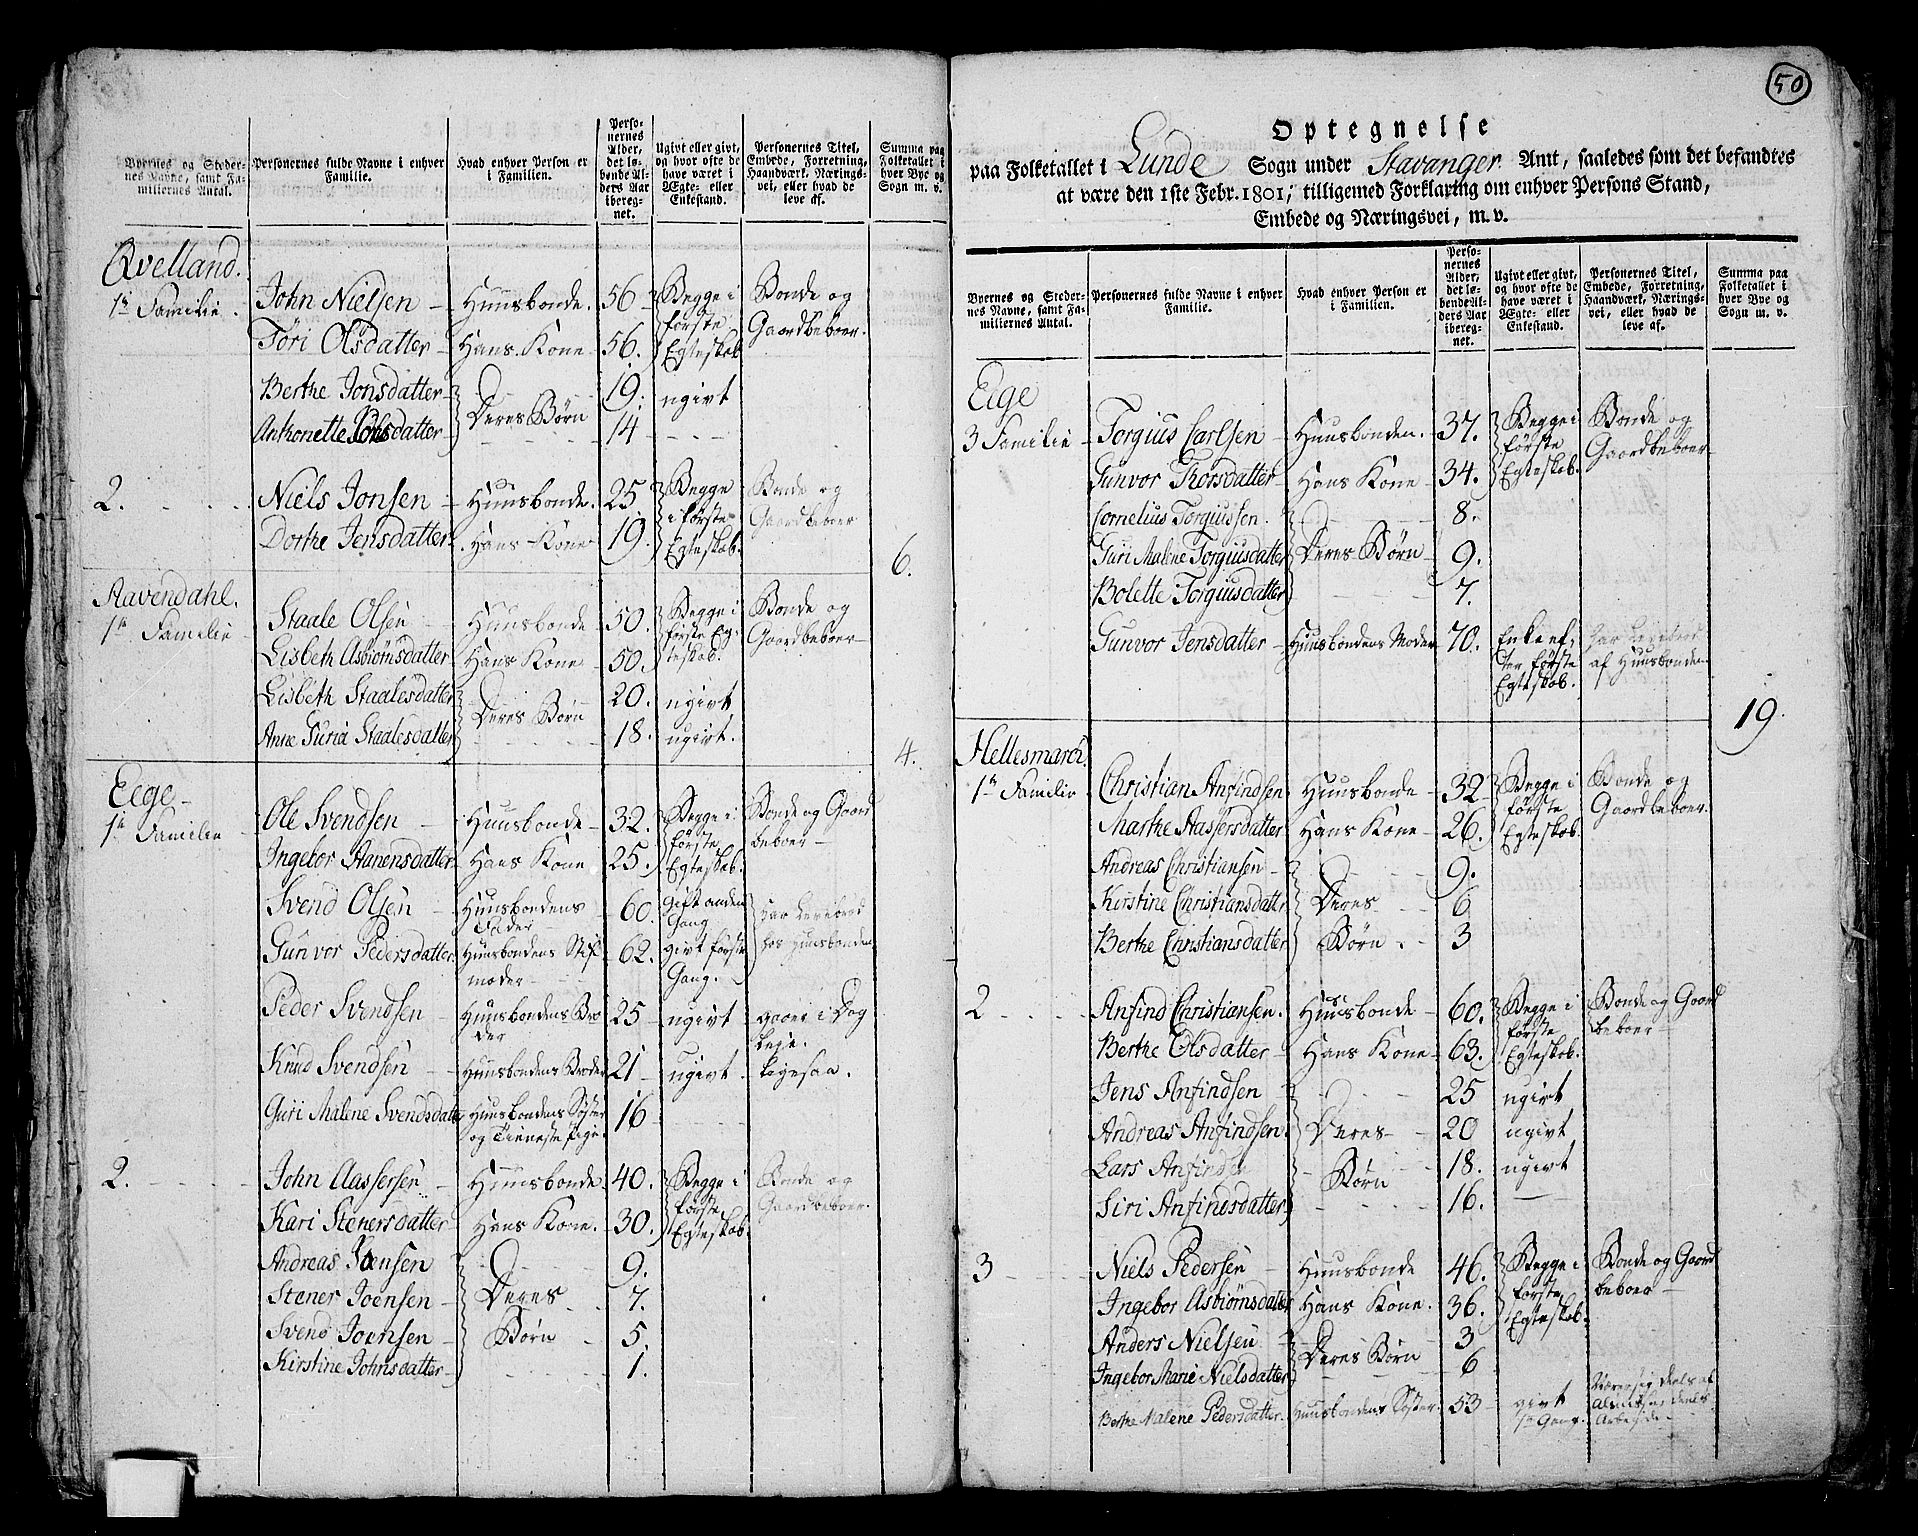 Byernes og Steder-
nes Navne, samt Fa-
miliernes Antal.
Personernes fulde Navne i enhver
Familie.
Hvad enhver Person er
i Familien.
Perso-
nernes
Alder,
det lø-
bende Al-
ders Aar
ibereg-
net.
Ugivt eller givt,
og hvor ofte de
have været i
Ægte- eller
Enkestand.
Personernes Titel,
Embede, Forretning,
Haandværk, Nærings-
vei, eller hvad de
leve af.
Summa paa
Folketallet i
hver Bye og
Sogn m. v.
Qvelland.
1te Familie. John Nielsen Huusbonde. 56 Begge i første Egteskab Bonde og Gaardbeboer
Töri Olsdatter Hans Kone 56.
Berthe Jonsdatter Deres Børn 19. ugivt
Anthonette Jonsdatter 14
2. Niels Jonsen Huusbonde. 25. Begge i første Egteskab. Bonde og Gaardbeboer
Dorthe Jensdatter Hans Kone 19.
6.
Aavendahl.
1te Familie Staale Olsen Huusbonde 50. Begge i første Eg-teskab. Bonde og Gaardbeboer
Lisbeth Asbiørnsdatter Hans Kone 50.
Lisbeth Staalesdatter Deres Børn 20. ugivt
Anne Suria Staalesdatter 18. ugivt.
4.
Eege
1te Familie Ole Svendsen Huusbonde 32. Begge i første Egteskab. Bonde og Gaard beboer
Ingebor Aanensdatter Hans Kone 25.
Svend Olsen Huusbondens Fader 60. Gift anden Gang har Levebrød hos Huusbonden
Gunvor Pedersdatter Huusbondens Stif moder 62. givt første Gang.
Peder Svendsen Huusbondens Bro der 25 ugivt gaaer i Dag Leje.
Knud Svendsen Huusbondens Broder 21 ugivt ligesaa.
Guri Malene Svendsdatter Huusbondens Søster og Tieneste Pige. 16
2. John Aassersen Huusbonde 40. Begge i første Egteskab. Bonde og Gaardbeboer.
Kari Stenersdatter Hans Kone. 30.
Andreas Joensen Deres Børn 9.
Stener Joensen 7.
Svend Joensen 5.
Kirstine Johnsdatter 1.
50
Optegnelse
paa Folketallet i Lunde Sogn under Stavanger Amt, saaledes som det befandtes
at være den 1ste Febr. 1801; tilligemed Forklaring om enhver Persons Stand,
Embede og Næringsvei, m. v.
Byernes og Steder-
nes Navne, samt Fa-
miliernes Antal.
Personernes fulde Navne i enhver
Familie.
Hvad enhver Person er
i Familien.
Perso-
nernes
Alder,
det lø-
bende Al-
ders Aar
ibereg-
net.
Ugivt eller givt,
og hvor ofte de
have været i
Ægte- eller
Enkestand.
Personernes Titel,
Embede, Forretning,
Haandværk, Nærings-
vei, eller hvad de
leve af.
Summa paa
Folketallet i
hver Bye og
Sogn m. v.
Eige
3 Familie Torgius Carlsen Huusbonden. 37. Begge i første Egteskab. Bonde og Gaardbeboer
Gunvor Thorsdatter Hans Kone 34.
Cornelius Torgiussen. Deres Børn 8.
Guri Malene Torgiusdatter 9.
Bolette Torgiusdatter 7.
Gunvor Jensdatter Huusbondens Moder 70. Enke ef-ter første Egteskab. Har Levebrød af Huusbonden
19.
Hellesmarch
1te Familie Christian Anfindsen Huusbonde 32 Begge i første Egteskab. Bonde og Gaardbeboer.
Marthe Aassersdatter Hans Kone 26.
Andreas Christiansen Deres Børn 9.
Kirstine Christiansdatter 6
Berthe Christiansdatter 3
2 Anfind Christiansen. Huusbonde 60. Begge i første Egteskab. Bonde og Gaard beboer
Berthe Olsdatter Hans Kone 63.
Jens Anfindsen Deres Børn 25 ugivt
Andreas Anfindsen. 20 ugivt
Lars Anfindsen 18. ugivt
Siri Anfindsdatter 16.
3 Niels Pedersen Huusbonde 46. Begge i første Egteskab. Bonde og Gaard beboer
Ingebor Asbiørnsdatter Hans Kone. 36.
Anders Nielsen Deres Børn 3
Ingebor Marie Nielsdatter 6
Berthe Malene Pedersdatter. Huusbondens Søster. 53 givt 1te Gang. Nærer sig deels af Almisse, deels Arbejde